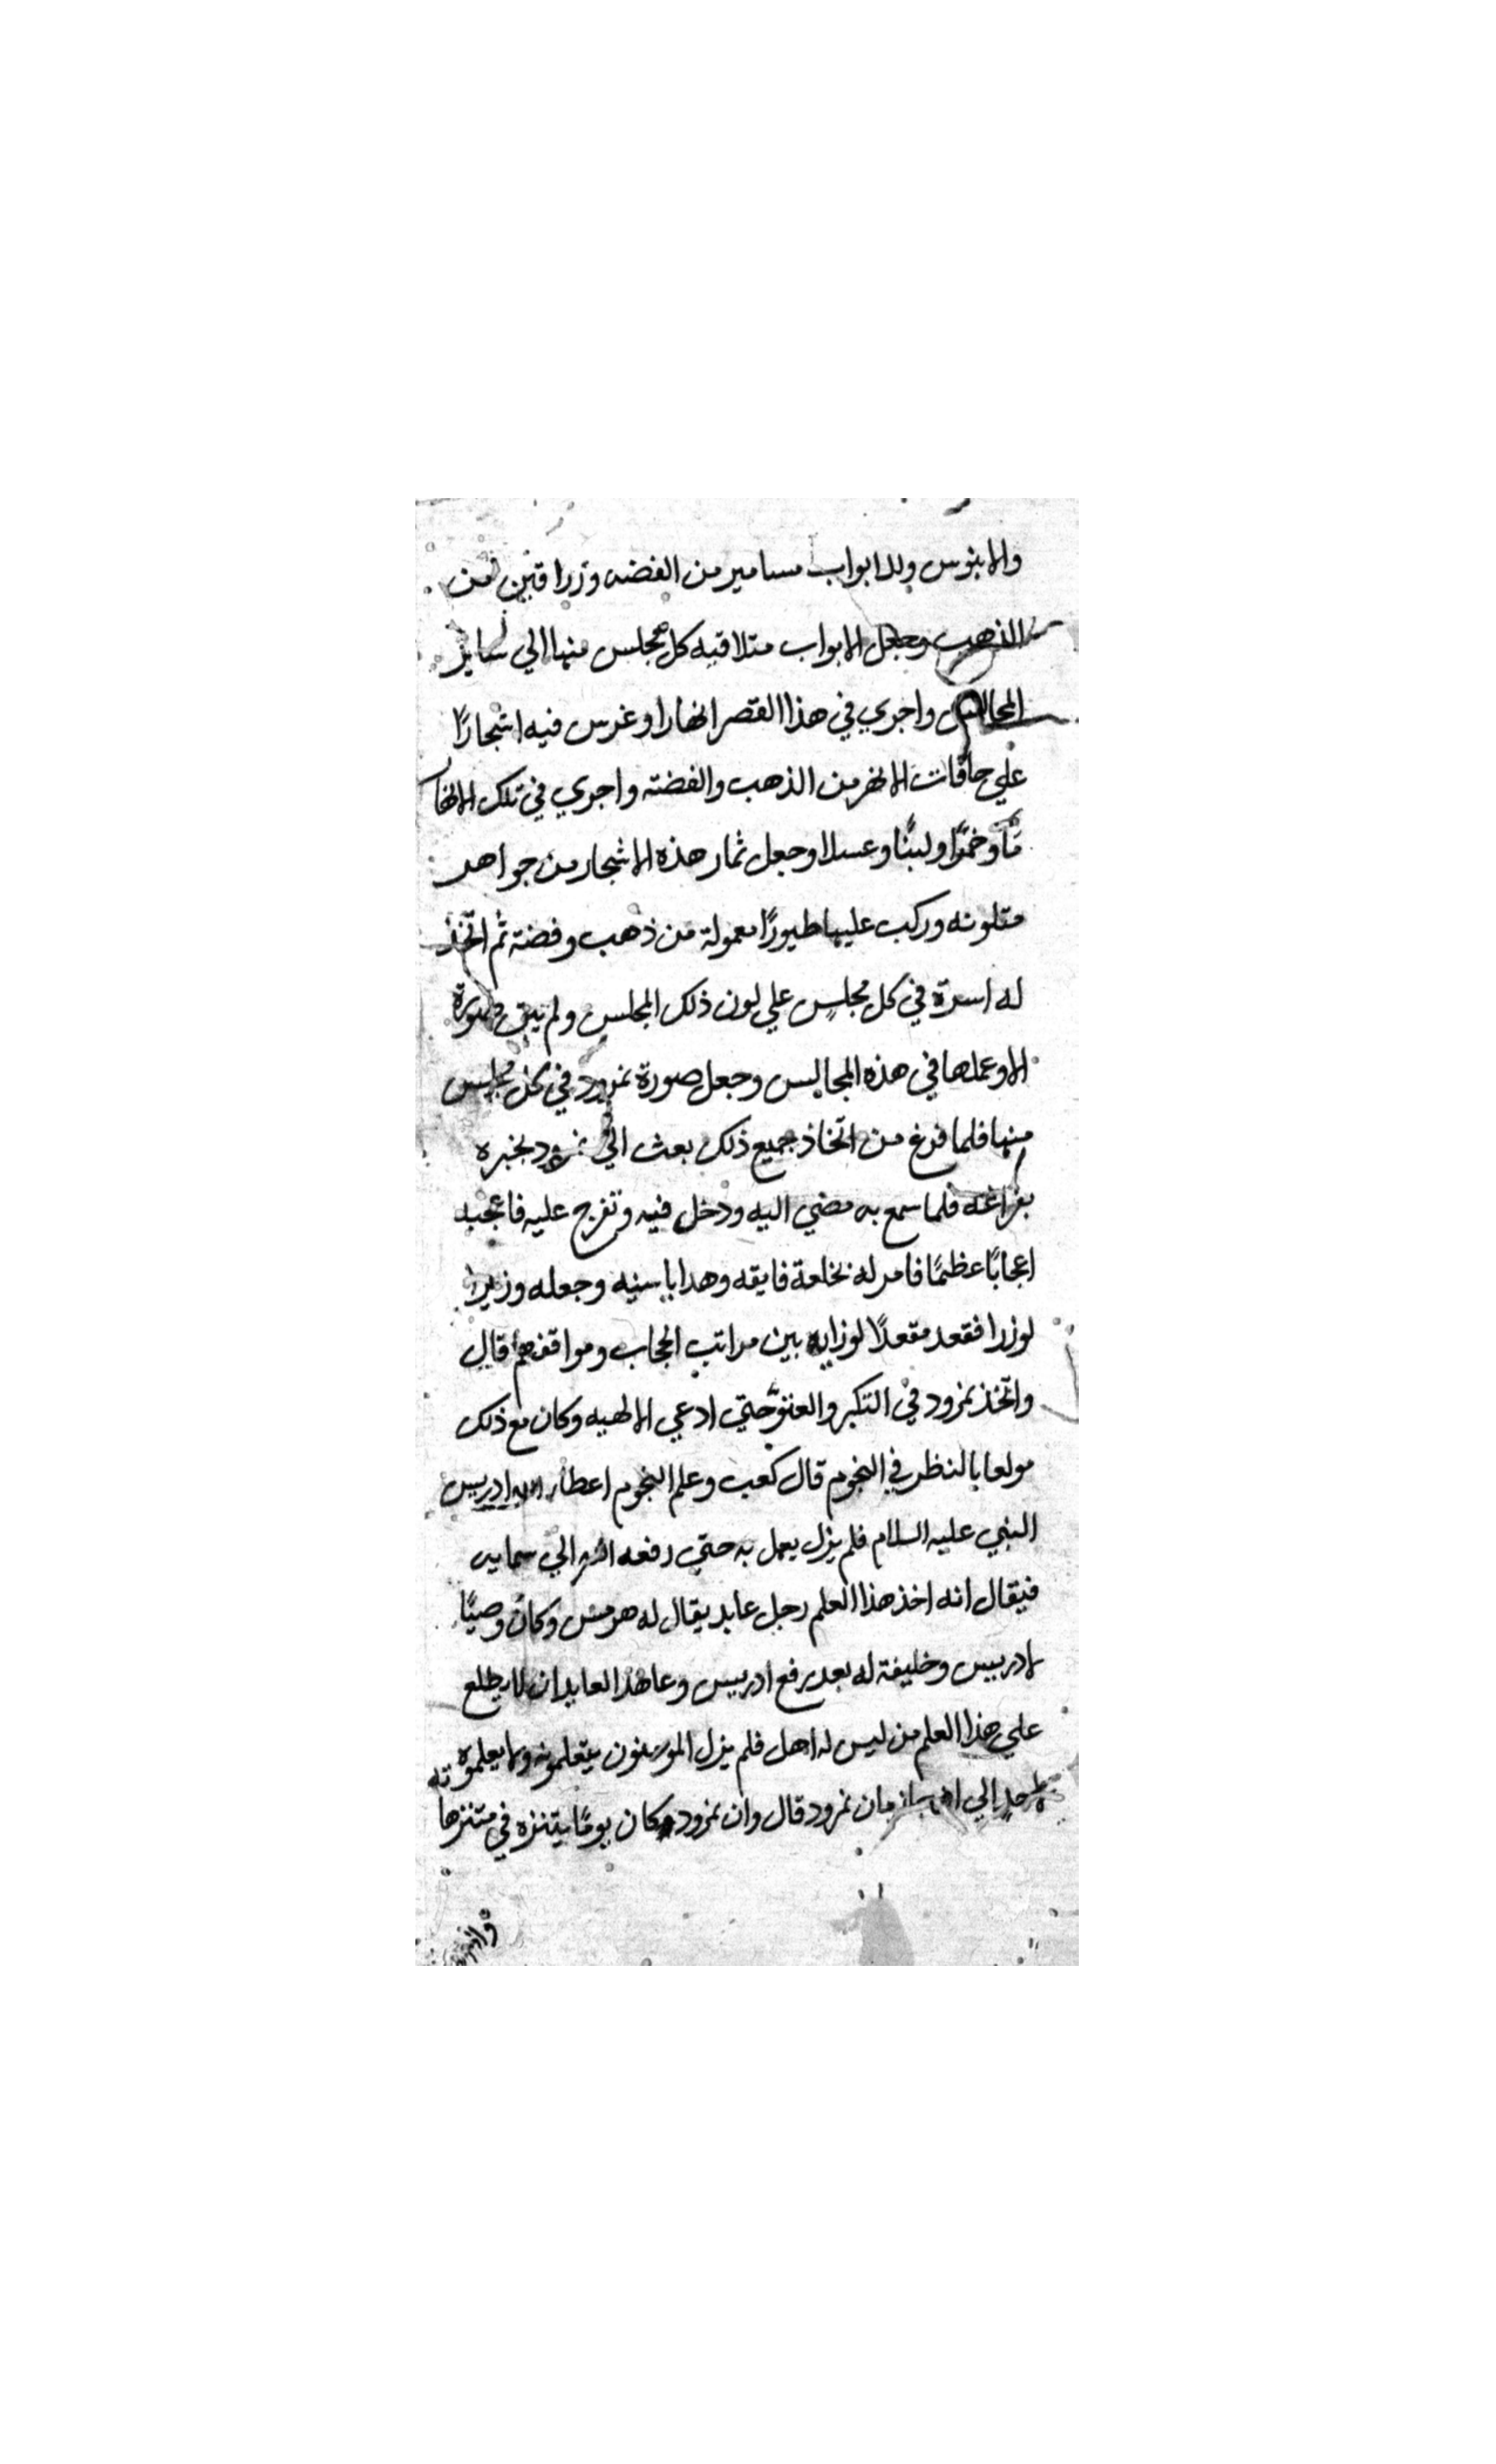 والابنوس وللابواب مسامير من الفضه وزرافين من
الذهب وجعل الابواب متلاقيه كل مجلس منها الي ساير
المجالس واجري في هذا القصر انهارا وغرس فيه اشجارًا
علي حافات الانهر من الذهب والفضته واجري في تلك الانها
مًّا وخمرًا ولبنًا وعسلا وجعل ثمار هذه الاشجار من جواهر
متلونه وركب عليها طيورًا معمولة من ذهب وفضة ثم اتّخذ
له اسرة في كل مجلس علي لون ذلك المجلس ولم يبق صورة
الا وعملها في هذه المجاليس وجعل صورة نمرود في كل مجلس
منها فلما فرغ من اتخاذ جميع ذلك بعث الي نمرود يخبره
بفراغه فلما سمع به مضي اليه ودخل فيه وتفرج عليه فاعجبه
اعجابًا عظيمًا فامر له بخلعة فايقه وهدايا سنيه وجعله وزيرا
لوزرا فقعد مقعدًا لوزايه بين مراتب الحجاب ومواقفهم قال
واتّخذ نمرود في التكبر والعتوّ حتي ادعي الالهيه وكان مع ذلك
مولعا بالنظر في النجوم قال كعب وعلم النجوم اعطاه الله ادريس
النبي عليه السلام فلم يزل يعمل به حتي رفعه الله الي سمايه
فيقال انه اخذ هذا العلم رجل عابد يقال له هرمس وكان وصيًا
لادريس وخليفة له بعد رفع ادريس وعاهد العابد ان لا يطلع
علي هذا العلم من ليس له اهل فلم يزل المومنون يتعلمونه ولا يعلمونه
لاحد الي ان زمان نمرود قال وان نمرود كان يومًا يتنزه في متنزها